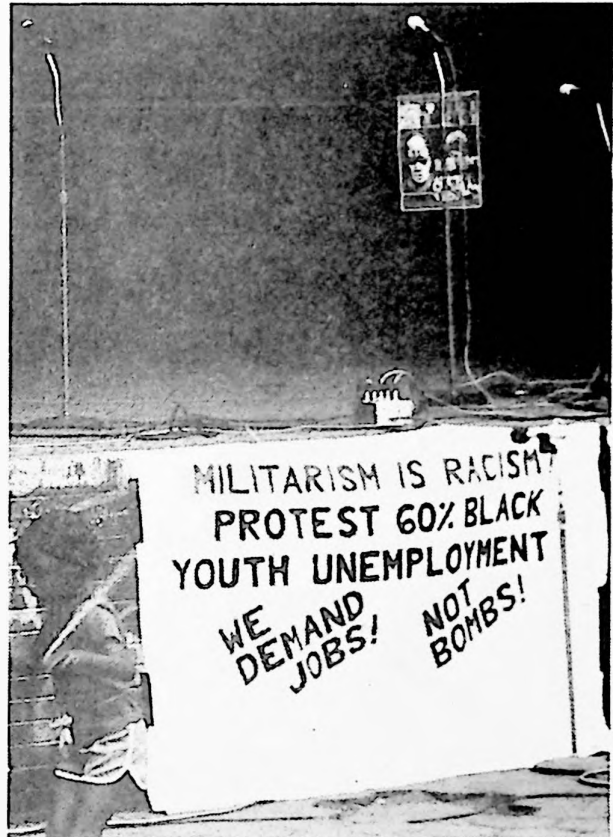 MILITARISM IS RACISM!
PROTEST 60% BLACK
YOUTH UNEMPLOYMENT
WE
DEMAND
JOBS!
NOT
BOMBS!